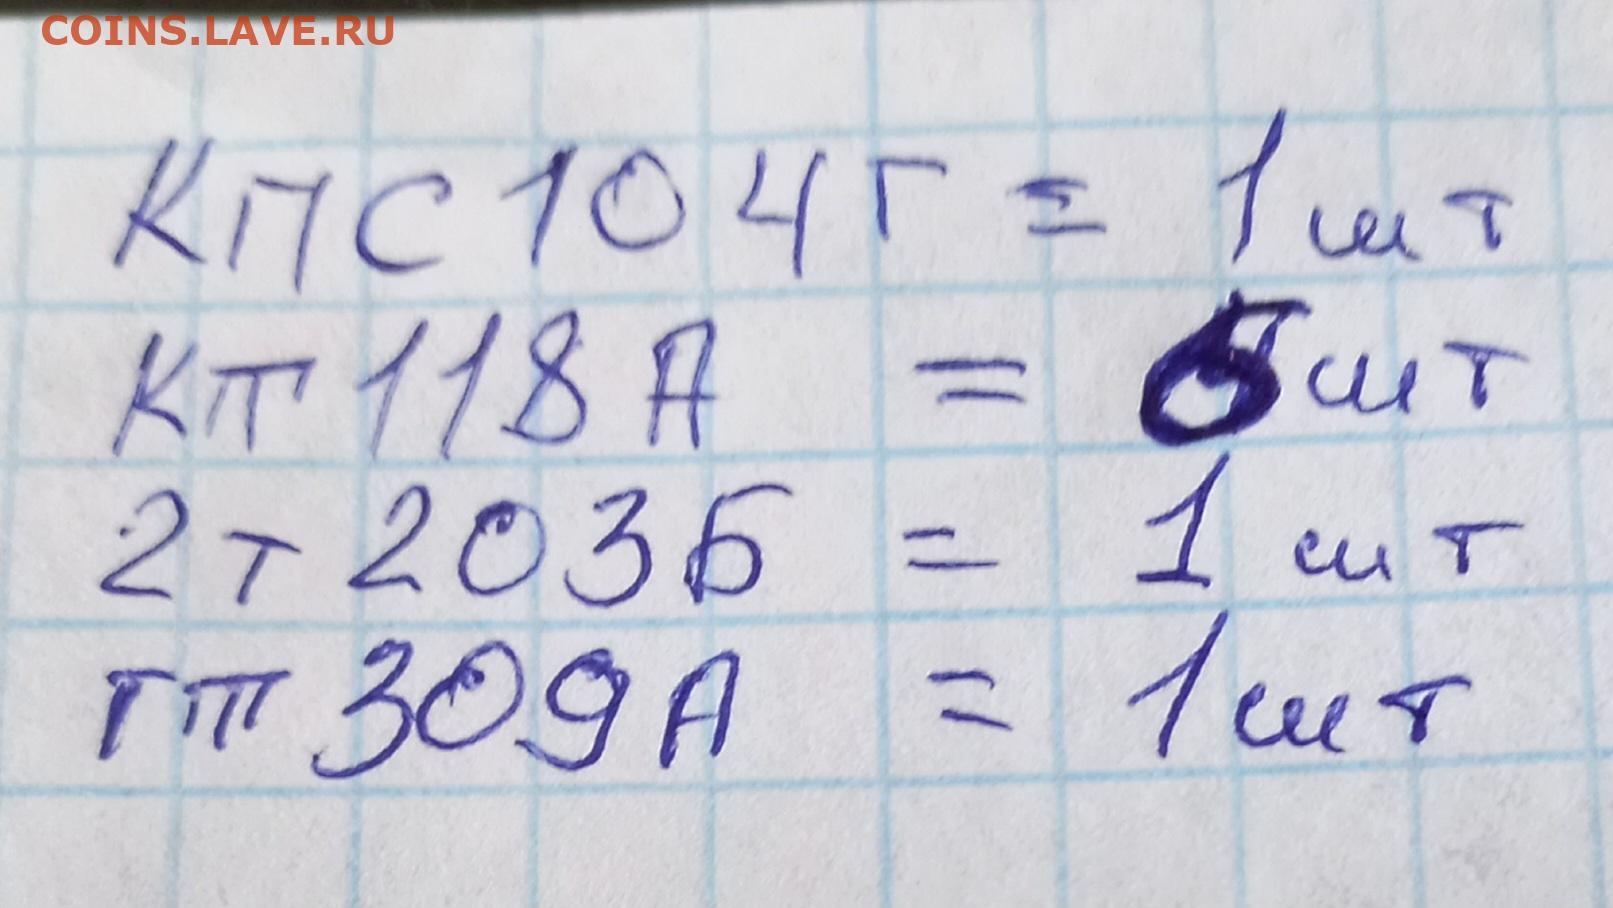 COINS.LAVE.RU
КПС104Г = 1шт
КТ118А = 5шт
2т203Б = 1шт
ГТ309А = 1шт